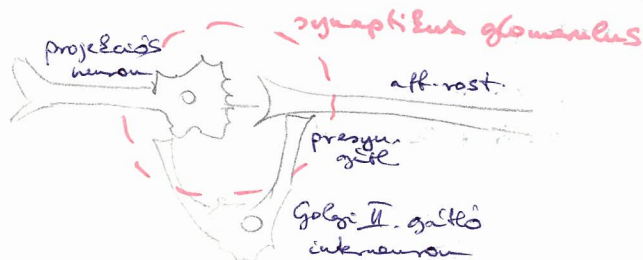 synaptikus glomerulus
projekciós
neuron
aff. rost.
presyn.
gátl
Golgi II. gátló
interneuron